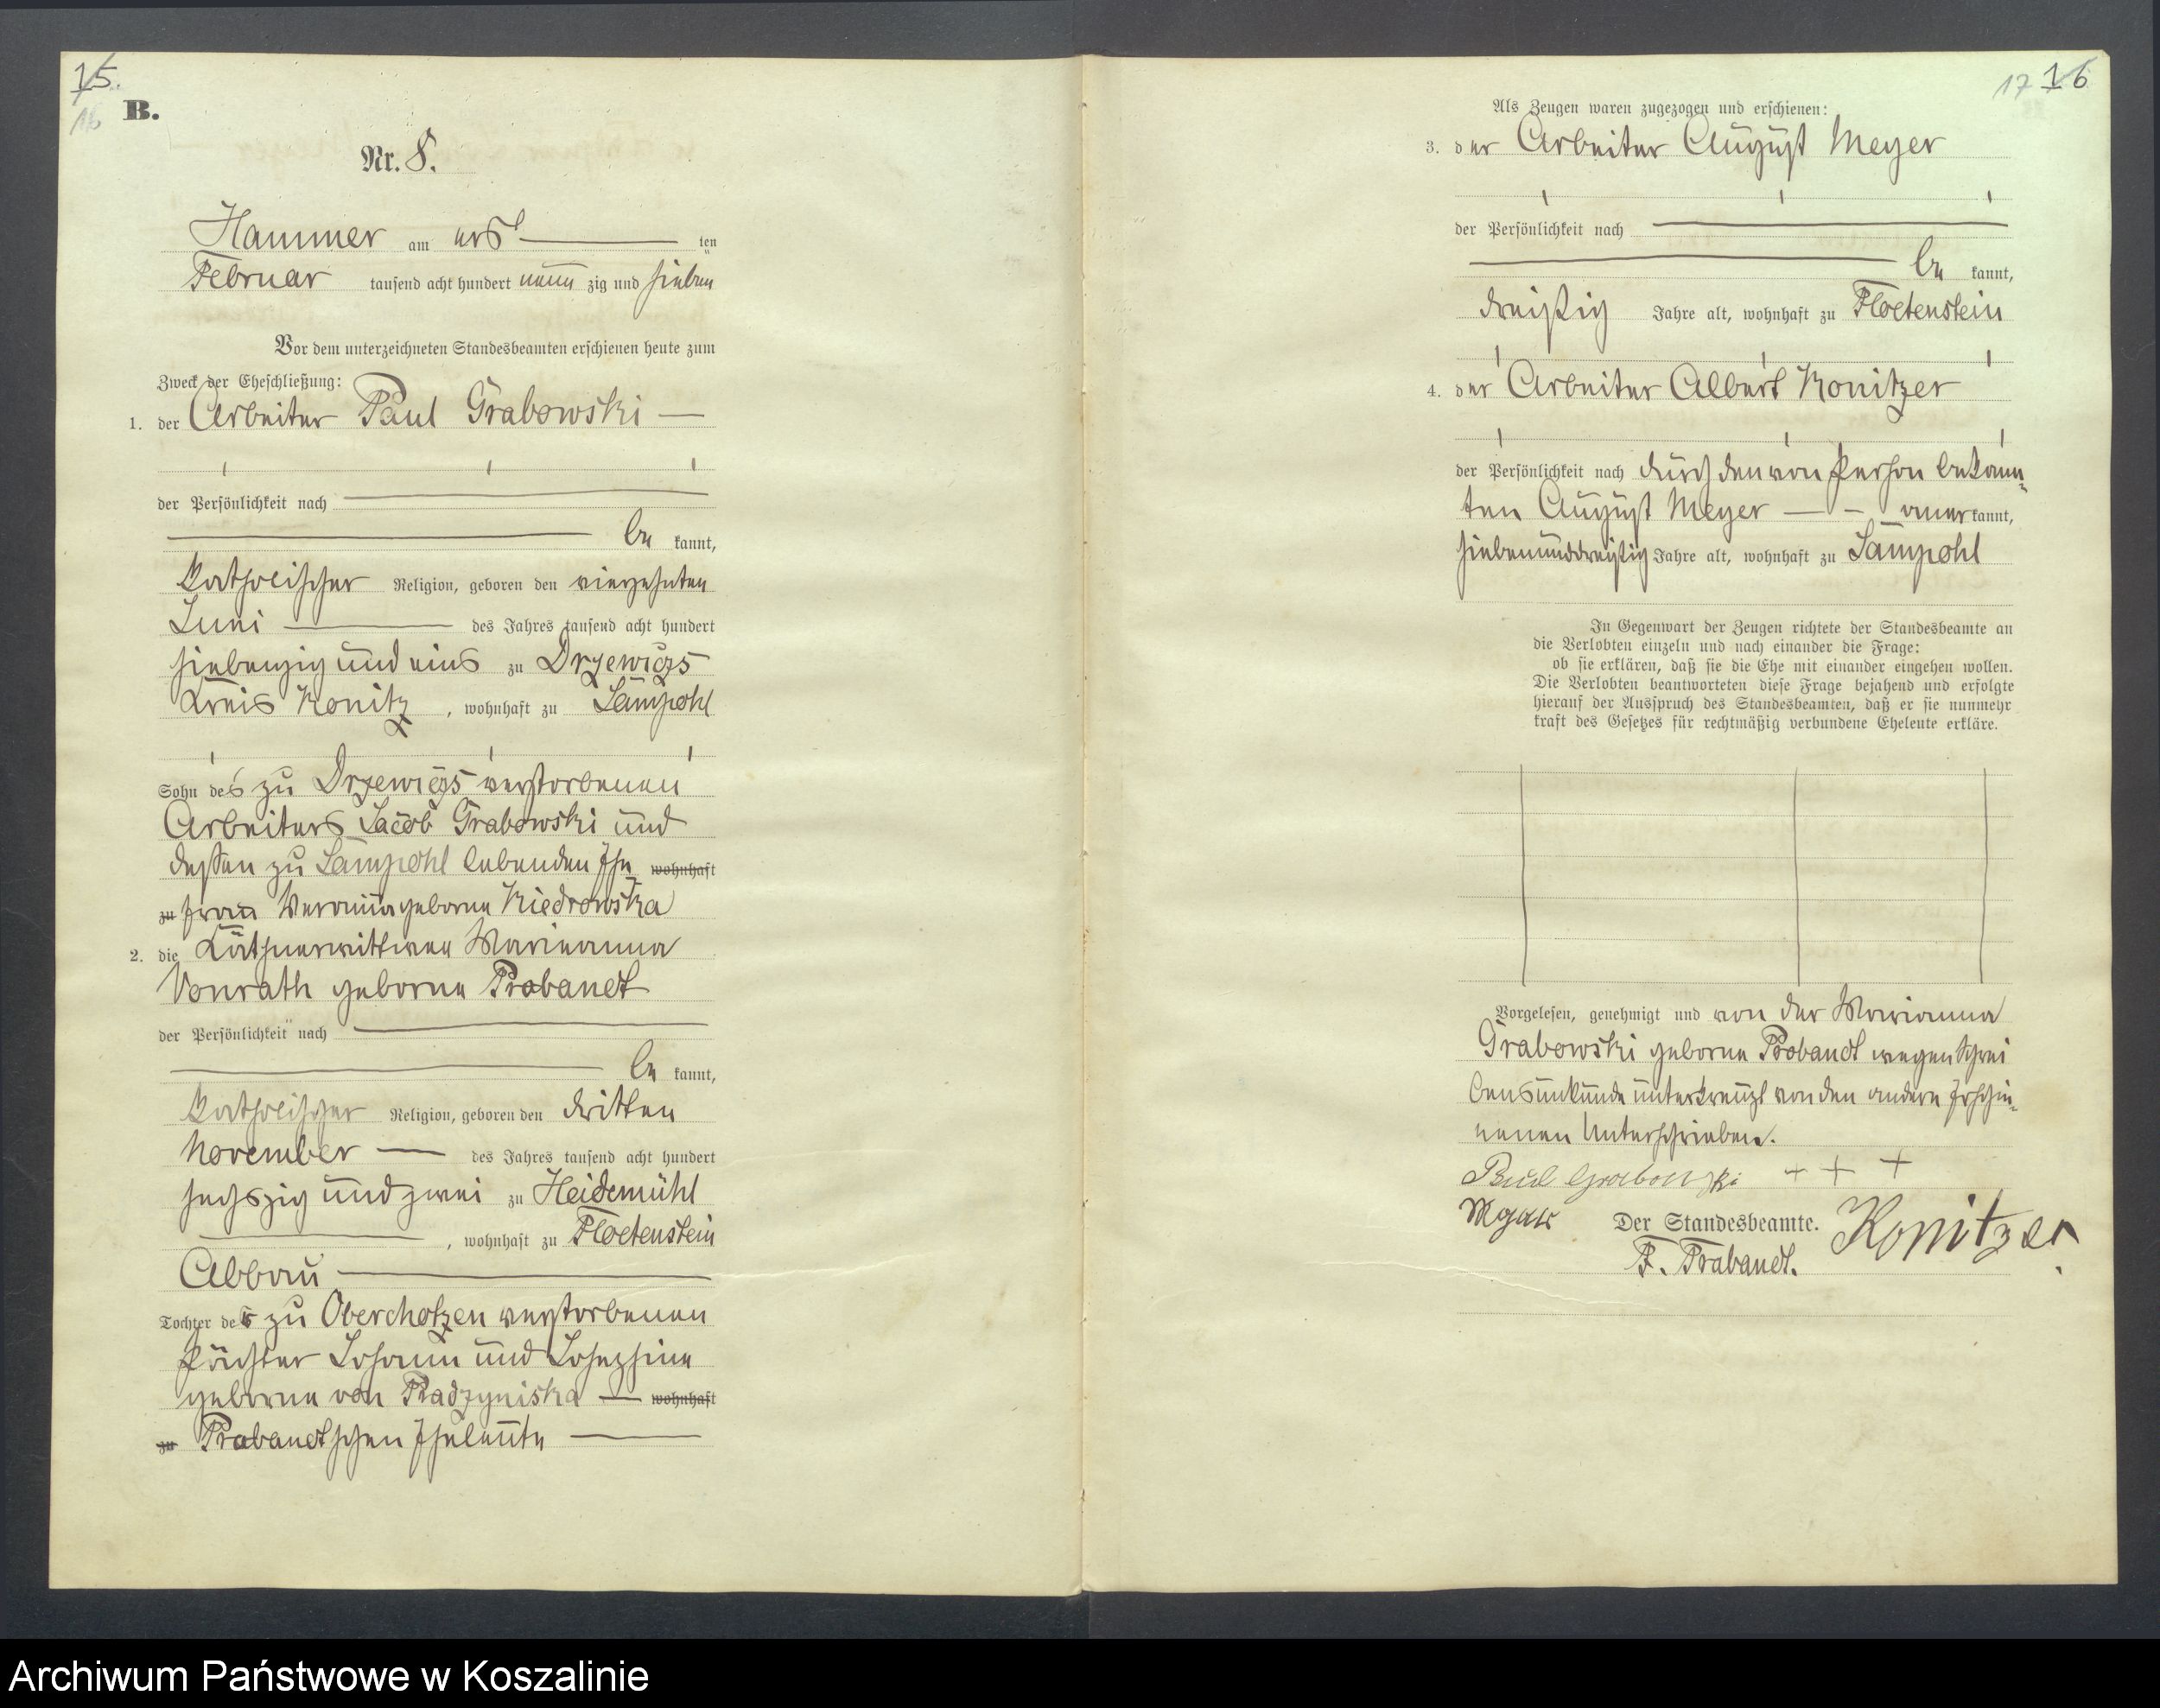 15.
16
B.
Nr. 8.
Hammer am erst ten
Februar tausend acht hundert neun zig und sieben
Vor dem unterzeichneten Standesbeamten erschienen heute zum
Zweck der Eheschließung:
1. der Arbeiter Paul Grabowski —
der Persönlichkeit nach
be kannt,
katholischer Religion, geboren den vierzehnten
Juni — des Jahres tausend acht hundert
siebenzig und eins zu
Kreis Konitz, wohnhaft zu Sampohl
Sohn des zu verstorbenen
Arbeiters Jacob Grabowski und
dessen zu Sampohl lebenden Ehe wohnhaft
zu frau Veronica geborne Kiedrowska
2. die Käthnerwittwe Marianna
Vonrath geborne Prabandt
der Persönlichkeit nach
be kannt,
katholischer Religion, geboren den dritten
November — des Jahres tausend acht hundert
sechszig und zwei zu Heidemühl
, wohnhaft zu Floetenstein
Abbau —
Tochter der zu Oberchotzen verstorbenen
Pächter Johann und Josephine
geborne von — wohnhaft
zu Prabandtschen Eheleute —
17 16
Als Zeugen waren zugezogen und erschienen:
3. der Arbeiter August Meyer
der Persönlichkeit nach
be kannt,
dreißig Jahre alt, wohnhaft zu Floetenstein
4. der Arbeiter Albert Konitzer
der Persönlichkeit nach durch den von Person bekann-
ten August Meyer — – aner kannt,
siebenunddreißig Jahre alt, wohnhaft zu Sampohl
In Gegenwart der Zeugen richtete der Standesbeamte an
die Verlobten einzeln und nach einander die Frage:
ob sie erklären, daß sie die Ehe mit einander eingehen wollen.
Die Verlobten beantworteten diese Frage bejahend und erfolgte
hierauf der Ausspruch des Standesbeamten, daß er sie nunmehr
kraft des Gesetzes für rechtmäßig verbundene Eheleute erkläre.
Vorgelesen, genehmigt und von der Marianna
Grabowski geborne Prabandt wegen Schrei
bensunkunde unterkreuzt von den andern Erschie-
nenen Unterschrieben.
Paul Grabowski + + +
Der Standesbeamte. Konitzer
F. Prabandt.
Archiwum Państwowe w Koszalinie